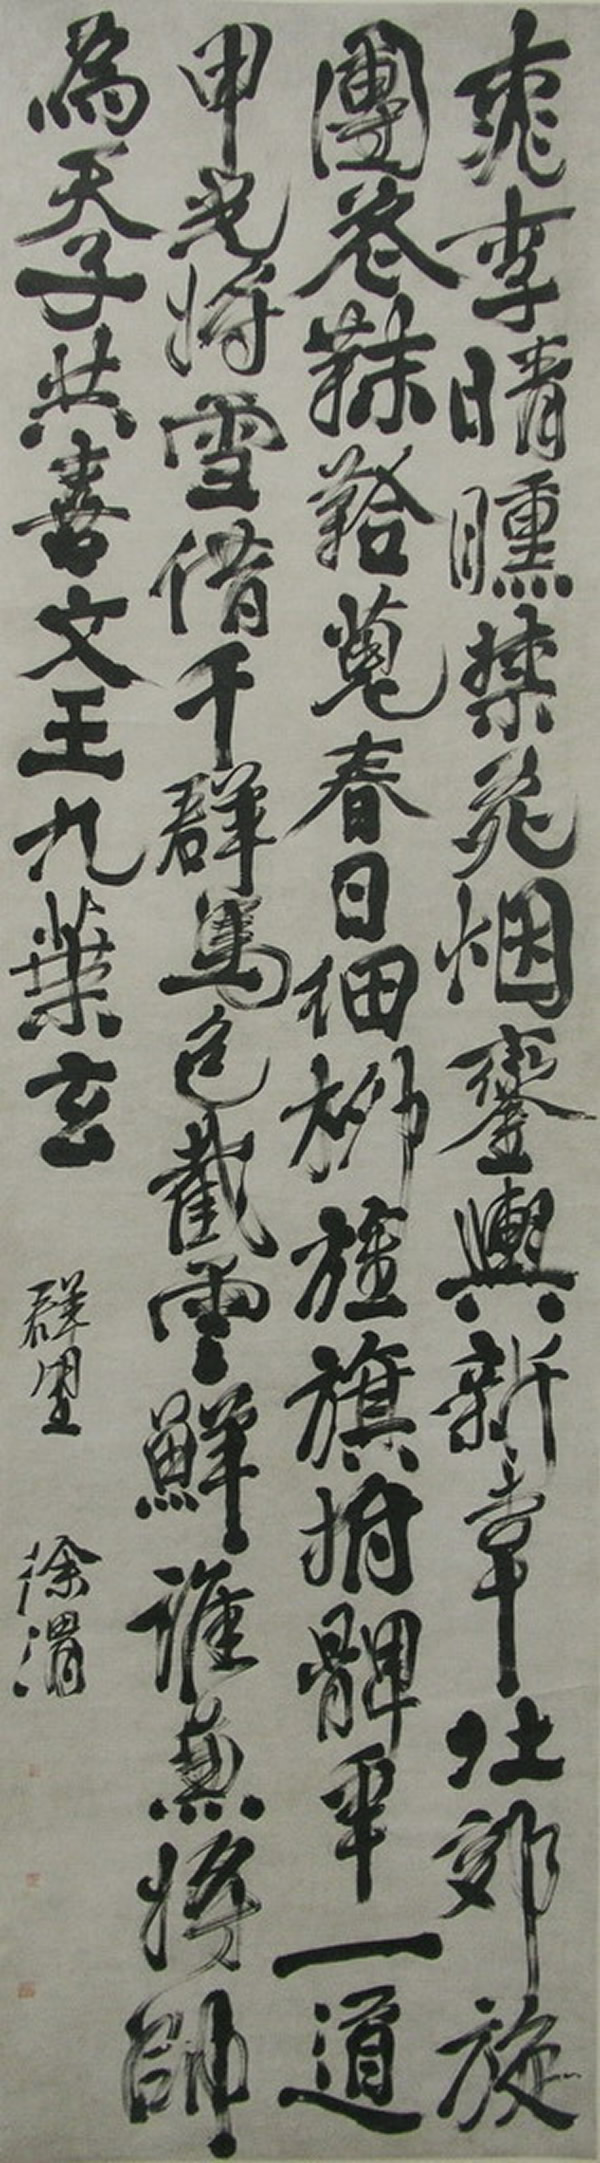 桃李晴曛禁苑烟鑾輿新幸北郊旋
團花韎韐蒐春日細柳旌旗拊髀年一道
甲光將雪借千群馬色截雲鮮誰兼將帥
為天子共喜文王九葉玄
徐渭